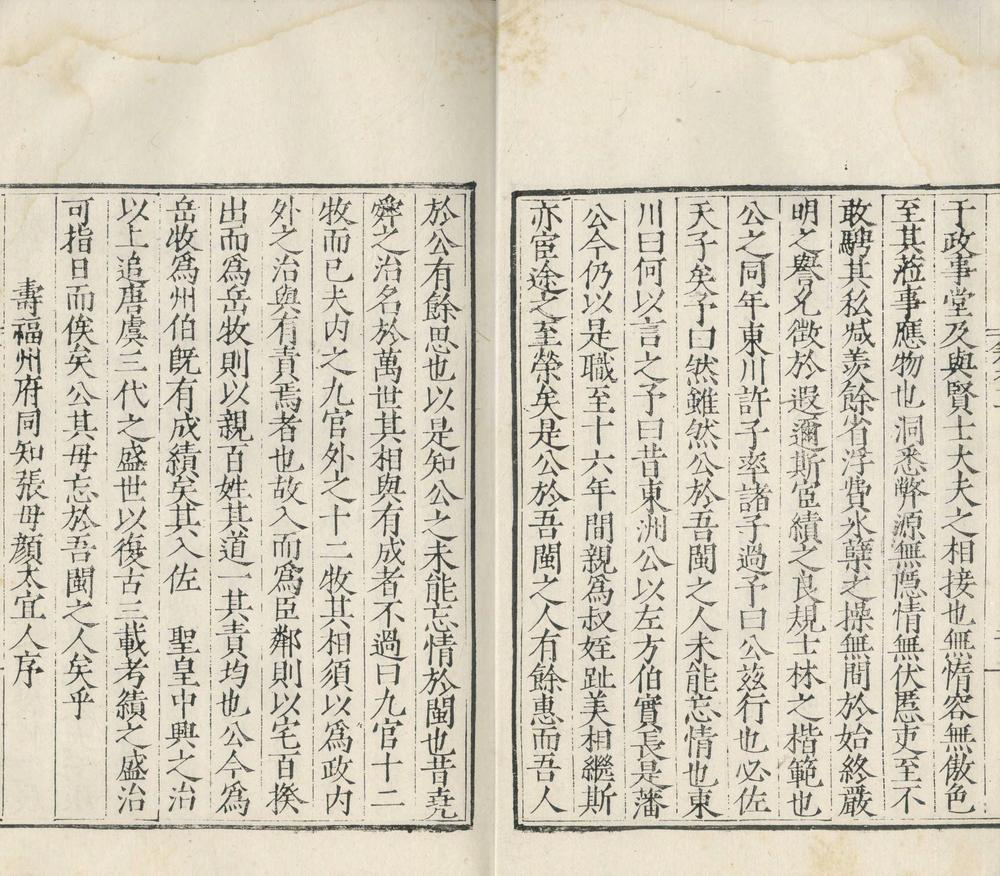 于政事堂及與賢士大夫之相接也無惰容無傲色
至其蒞事應物也洞悉弊源無隱情無伏慝吏至不
敢騁其私減羨餘省浮費氷孽之操無間於始終嚴
明之譽允徵於遐邇斯宦績之良規士林之楷範也
公之同年東川許子率諸子過予曰公茲行也必佐
天子矣予曰然雖然公於吾閩之人未能忘情也東
川曰何以言之予曰昔東洲公以左方伯實長是藩
公今仍以是職至十六年間親爲叔姪趾美相繼斯
亦宦途之至榮矣是公於吾閩之人有餘惠而吾人
於公有餘思也以是知公之未能忘情於閩也昔堯
舜之治名於萬世其相與有成者不過曰九官十二
牧而已夫内之九官外之十二牧其相須以爲政内
外之治與有責焉者也故入而爲臣鄰則以宅百揆
出而爲岳牧則以親百姓其道一其責均也公今爲
岳牧爲州伯旣有成績矣其入佐 聖皇中興之治
以上追唐虞三代之盛世以復古三載考績之盛治
可指日而俟矣公其毋忘於吾閩之人矣乎
壽福州府同知張母顔太宜人序